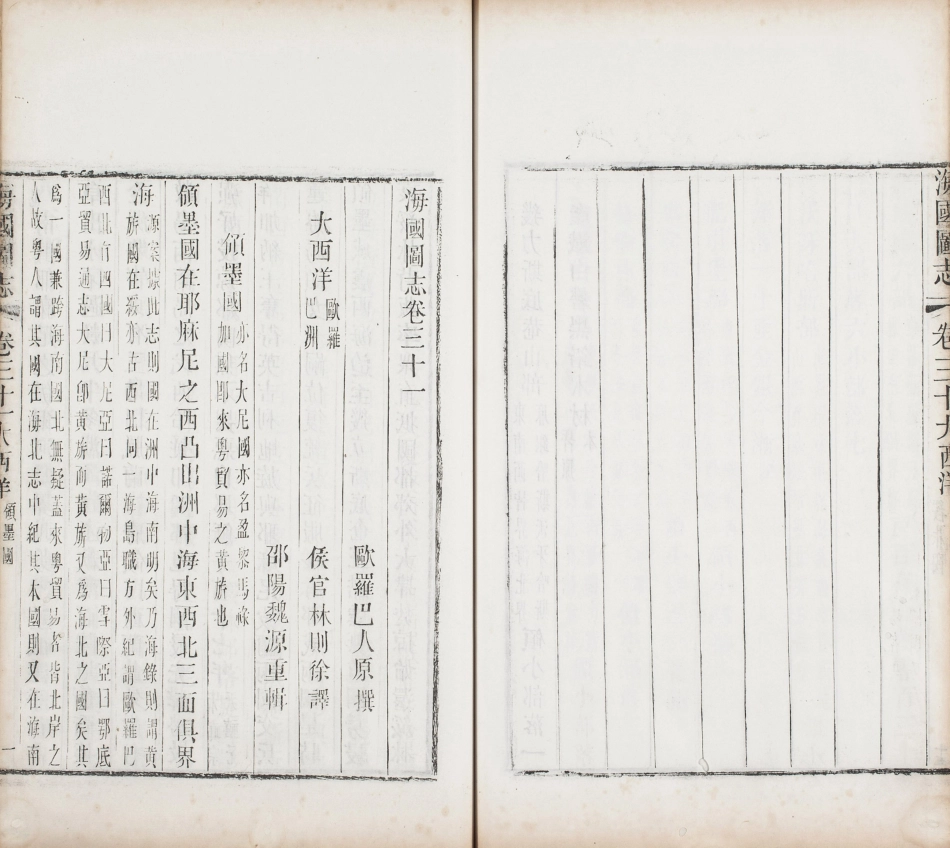 海國圖志 卷三十九 西洋
海國圖志卷三十一
歐羅巴人原撰
大西洋歐羅巴洲 侯官林則徐譯
邵陽魏源重輯
領墨國亦名大尼國亦名盈黎馬祿加國卽來粤貿易之黃旂也
領墨國在耶麻尼之西凸出洲中海東西北三面俱界
海源案據此志則國在洲中海南明矣乃海錄則謂黃旂國在綏亦古西北同一海島職方外紀謂歐羅巴
西北有四國曰大尼亞曰諾爾勿亞曰雪際亞曰鄂底亞貿易通志大尼卽黃旂而黃旂又爲海北之國矣其
爲一國兼跨海南國北無疑蓋來粤貿易者皆北岸之人故粤人謂其國在海北志中紀其本國則又在海南
海國圖志 卷三十一 大西洋 領墨國 一